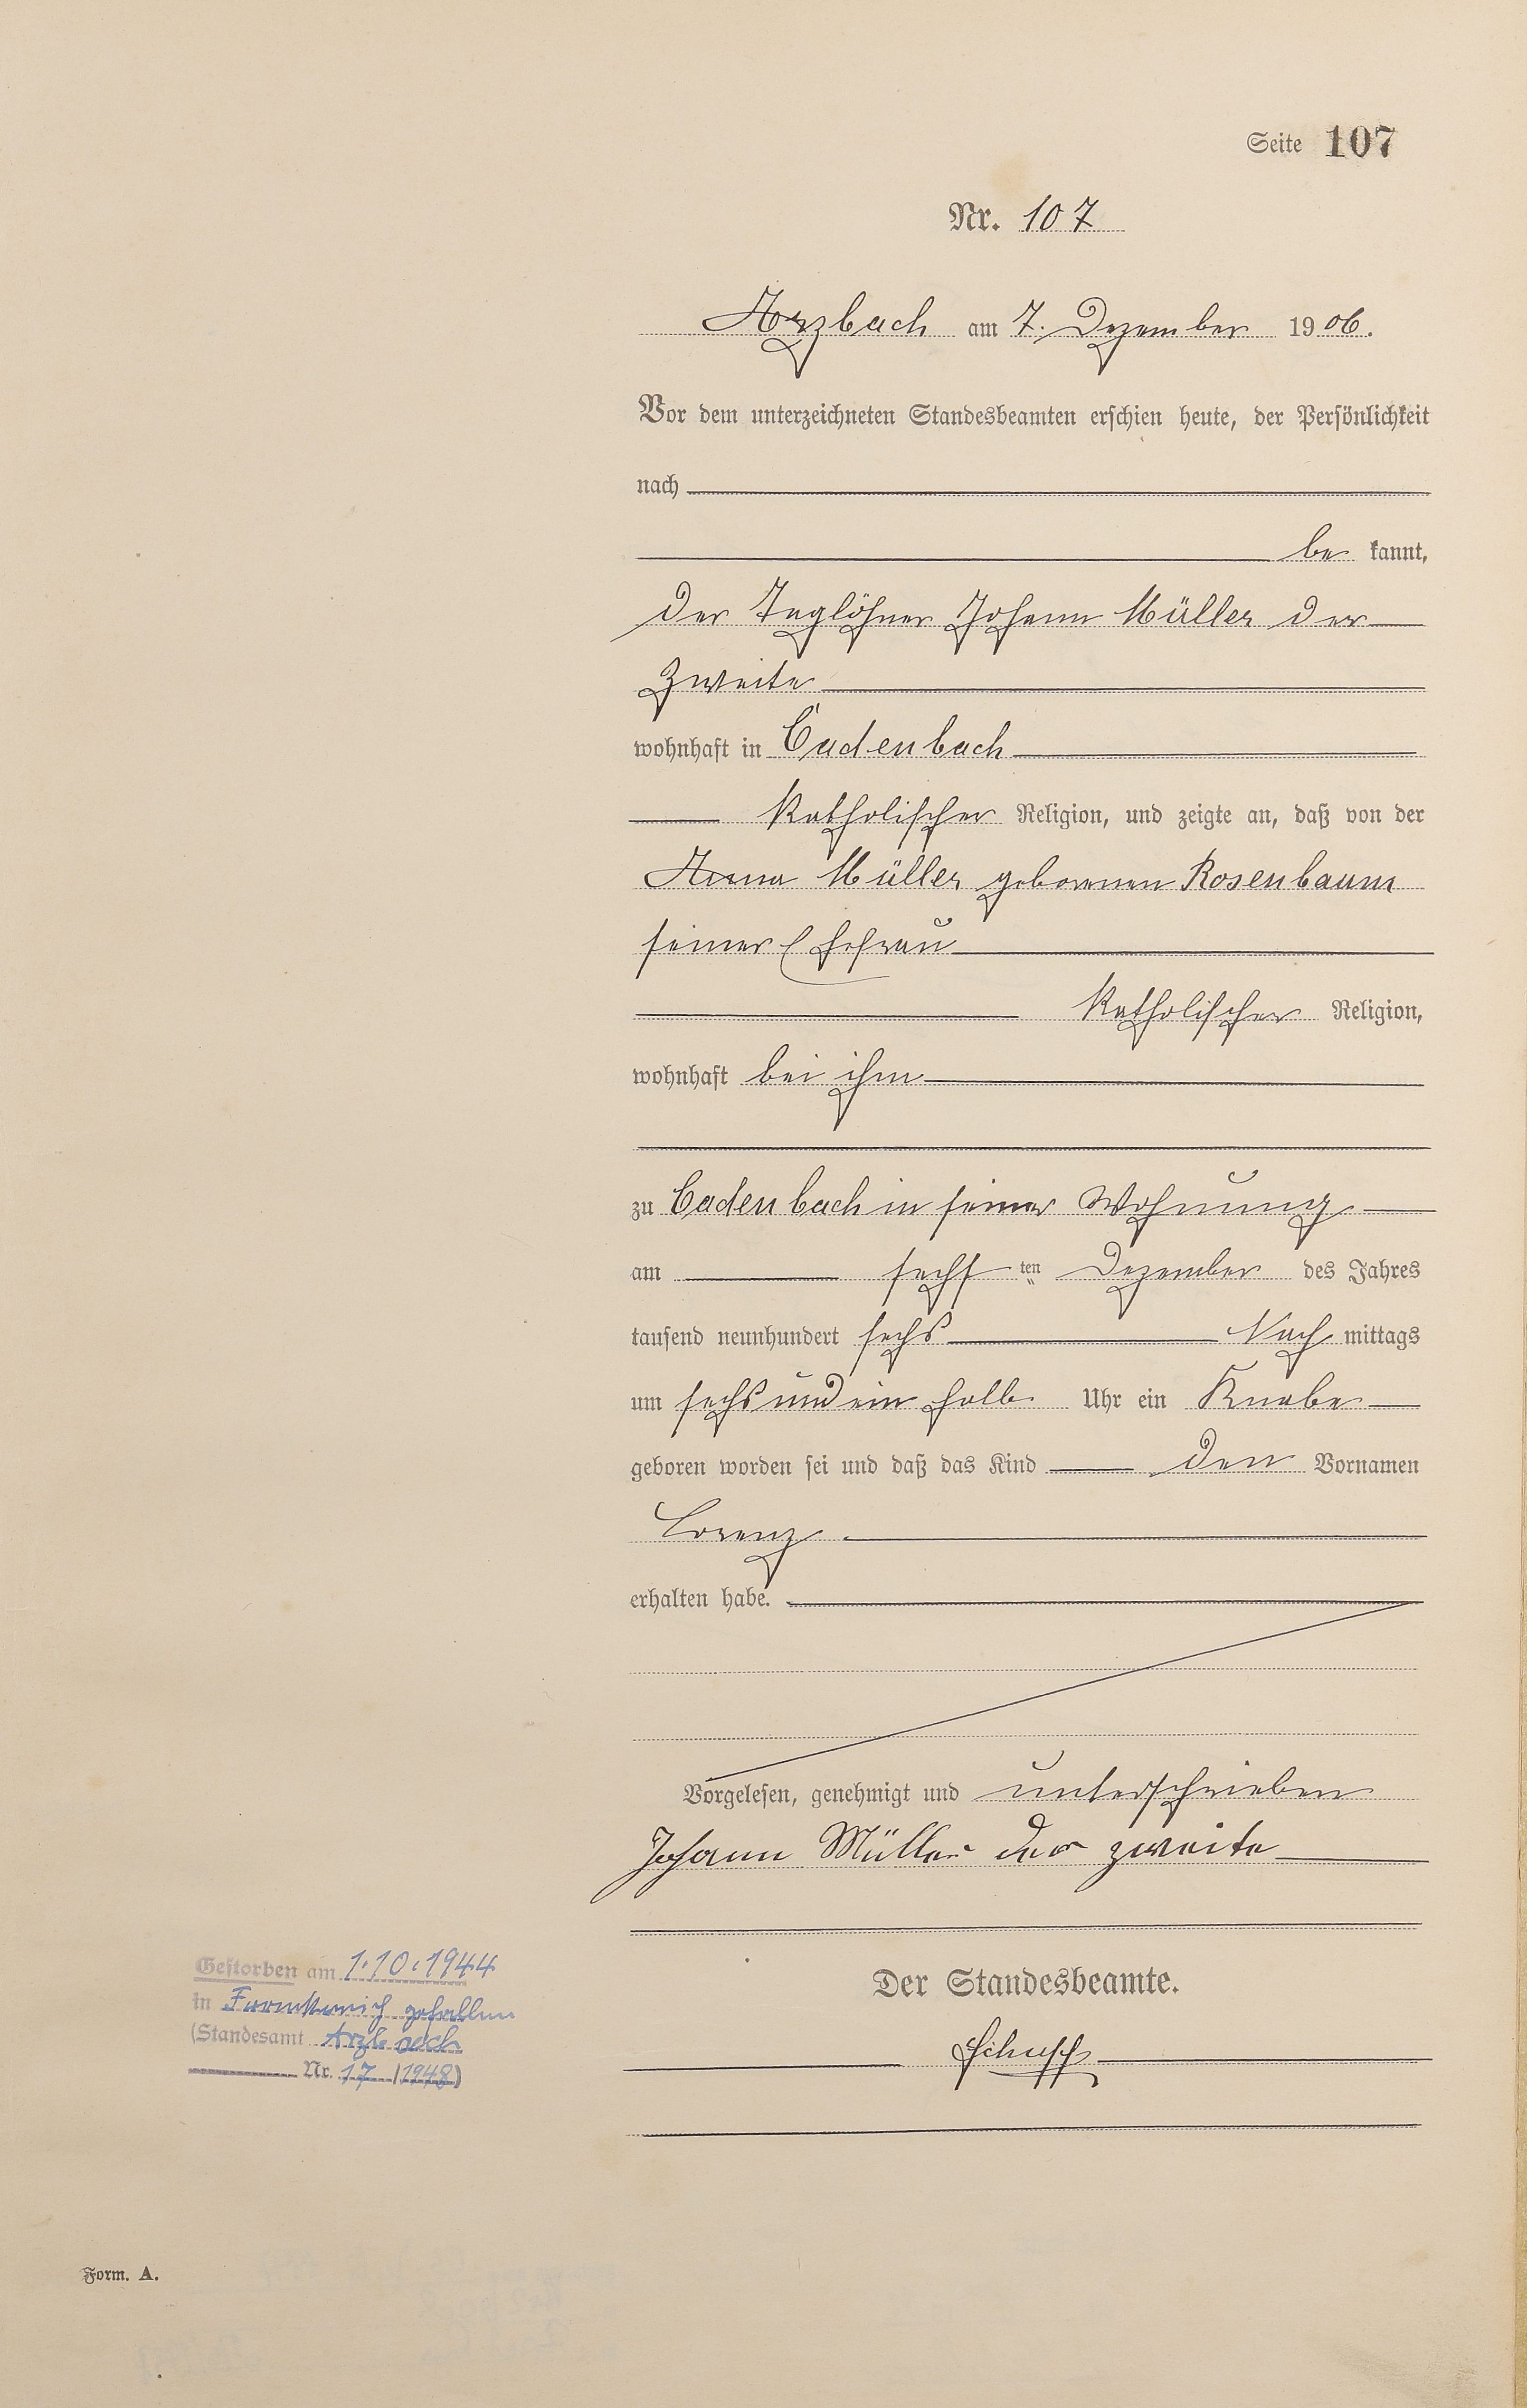 Seite 107
Nr. 107
Arzbach am 7. Dezember 1906.
Vor dem unterzeichneten Standesbeamten erschien heute, der Persönlichkeit
nach
be kannt,
der Taglöhner Johann Müller der
Zweite
wohnhaft in Cadenbach
Katholischer Religion, und zeigte an, daß von der
Anna Müller geborenen Rosenbaum
seiner Ehefrau
Katholischer Religion,
wohnhaft bei ihm
zu Cadenbach in seiner Wohnung
am sechsten Dezember des Jahres
tausend neunhundert sechs Nach mittags
um sechs und ein halb Uhr ein Knabe
geboren worden sei und daß das Kind den Vornamen
Lorenz
erhalten habe.
Vorgelesen, genehmigt und unterschrieben
Johann Müller der zweite
Der Standesbeamte.
Gestorben am 1.10.1944
in gefallen
(Standesamt Arzbach
Nr. 17 /1948)
Form. A.